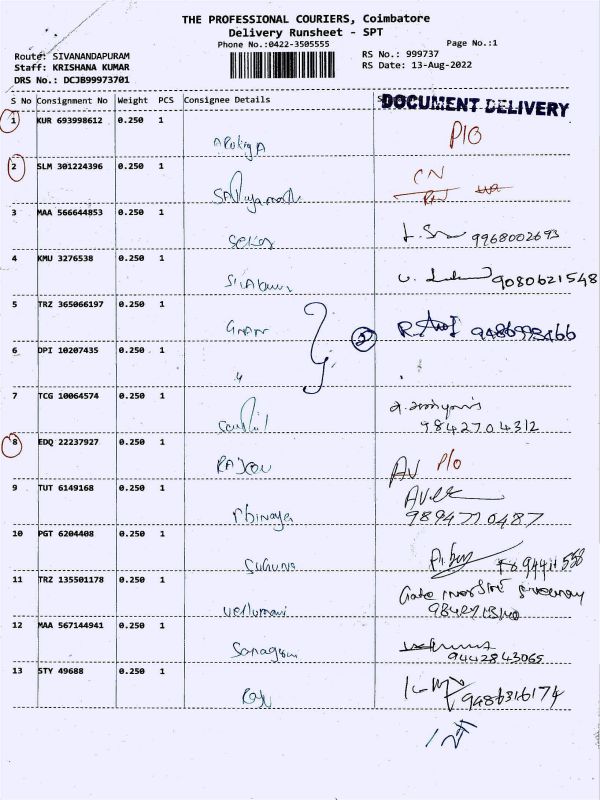 THE PROFESSIONAL COURIERS, Coimbatore
Delivery Runsheet - SPT
Phone No.:0422-3505555 Page No.:1
Route: SIVANANDAPURAM RS No.: 999737
Staff: KRISHANA KUMAR RS Date: 13-Aug-2022
DRS No.: DCJB99973701
S No Consignment No Weight PCS Consignee Details
DOCUMENT DELIVERY
1 KUR 693998612 0.250 1
P/O
2 SLM 301224396 0.250 1
CN
3 MAA 566644853 0.250 1
Sekar 9968002693
4 KMU 3276538 0.250 1
9080621548
5 TRZ 365066197 0.250 1
Gnan 2
6 DPI 10207435 0.250 1
7 TCG 10064574 0.250 1
Senthil 9842704312
8 EDQ 22237927 0.250 1
AV P/O
9 TUT 6149168 0.250 1
Abinaya 9894770487
10 PGT 6204408 0.250 1
Suguna
11 TRZ 135501178 0.250 1
12 MAA 567144941 0.250 1
9442843065
13 STY 49688 0.250 1
9486316174